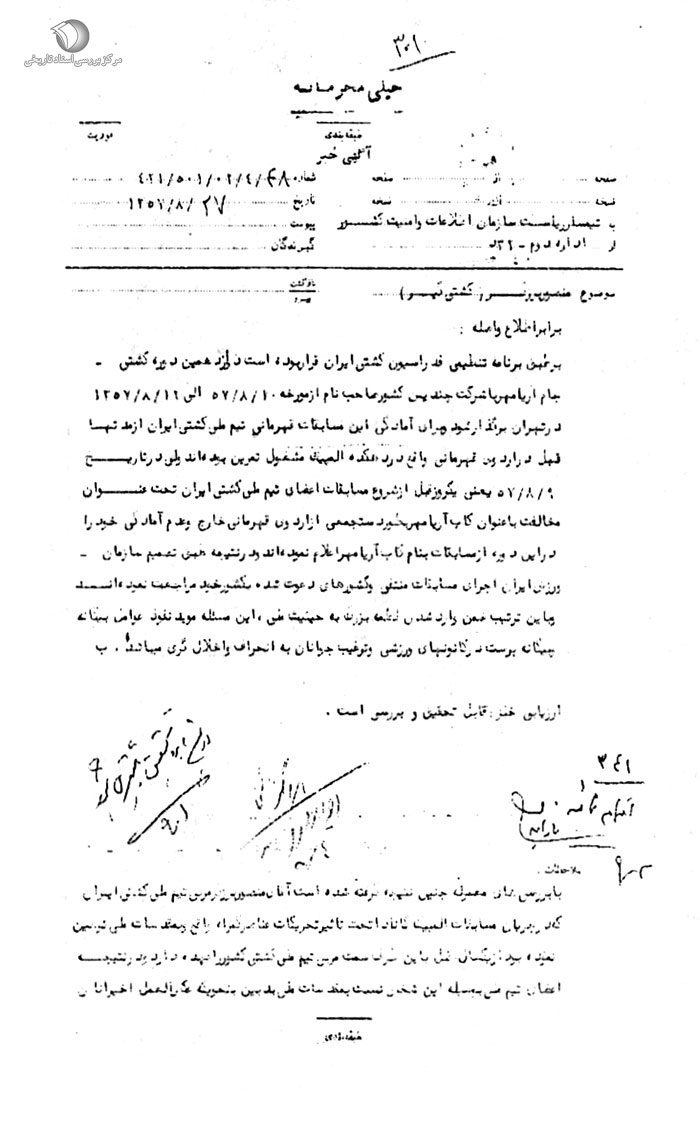 مرکز بررسی اسناد تاریخی
۳۰۱۰
خیلی محرمانه
طبقه بندی
فوریت
آگهی خبر
صفحه از صفحه شماره ۴۲۱/۵۰۱/۰۲/۴/۶۸
نسخه از نسخه تاریخ ۱۳۵۷/۸/۲۷
به تیمسار ریاست سازمان اطلاعات وامنیت کشور پیوست
از اداره دوم ـ ۳۲ گیرندگان
موضوع منصور برزگر ( کشتی گیر ) بازگشت
برابر اطلاع واصله :
برطبق برنامه تنظیمی فدراسیون کشتی ایران قراربوده است دوازدهمین دوره کشتی ـ
جام آریامهرباشرکت چندین کشورصاحب نام ازمورخه ۵۷/۸/۱۰ الی ۱۳۵۷/۸/۱۲
درتهران برگذارشود وبرای آمادگی این مسابقات قهرمانی تیم ملی کشتی ایران ازمدتها
قبل دراردوی قهرمانی واقع در دهکده المپیک مشغول تمرین بوده اند ولی درتاریخ
۵۷/۸/۹ یعنی یکروزقبل ازشروع مسابقات اعضای تیم ملی کشتی ایران تحت عنوان
مخالفت باعنوان کاپ آریامهربطور دستجمعی ازاردوی قهرمانی خارج وعدم آمادگی خود را
دراین دوره ازمسابقات بنام کاپ آریامهراعلام نموده اند ودرنتیجه طبق تصمیم سازمان ـ
ورزش ایران اجرای مسابقات منتفی وکشورهای دعوت شده بکشورخود مراجعت نموده اند
وباین ترتیب ضمن وارد شدن لطمه بزرگ به حیثیت ملی ، این مسئله موید نفوذ عوامل بیگانه
بیگانه پرست درکانونهای ورزشی وترغیب جوانان به انحراف واخلال گری میباشد . ب
ارزیابی خبر : قابل تحقیق و بررسی است .
۳۴۱
ملاحظات .
بابررسی های معموله چنین نتیجه گرفته شده است آقای منصور برزگر مربی تیم ملی کشتی ایران
که درجریان مسابقات المپیک کانادا تحت تاثیر تحریکات عناصر گمراه واقع وبمقدسات ملی توهین
نموده بود ازیکسال قبل باین طرف سمت مربی تیم ملی کشتی کشور را بعهده دارد ودرنتیجه
اعضای تیم ملی بوسیله این شخص نسبت بمقدسات ملی بدبین بنحویکه عکس العمل اخیرآنان
طبقه بندی